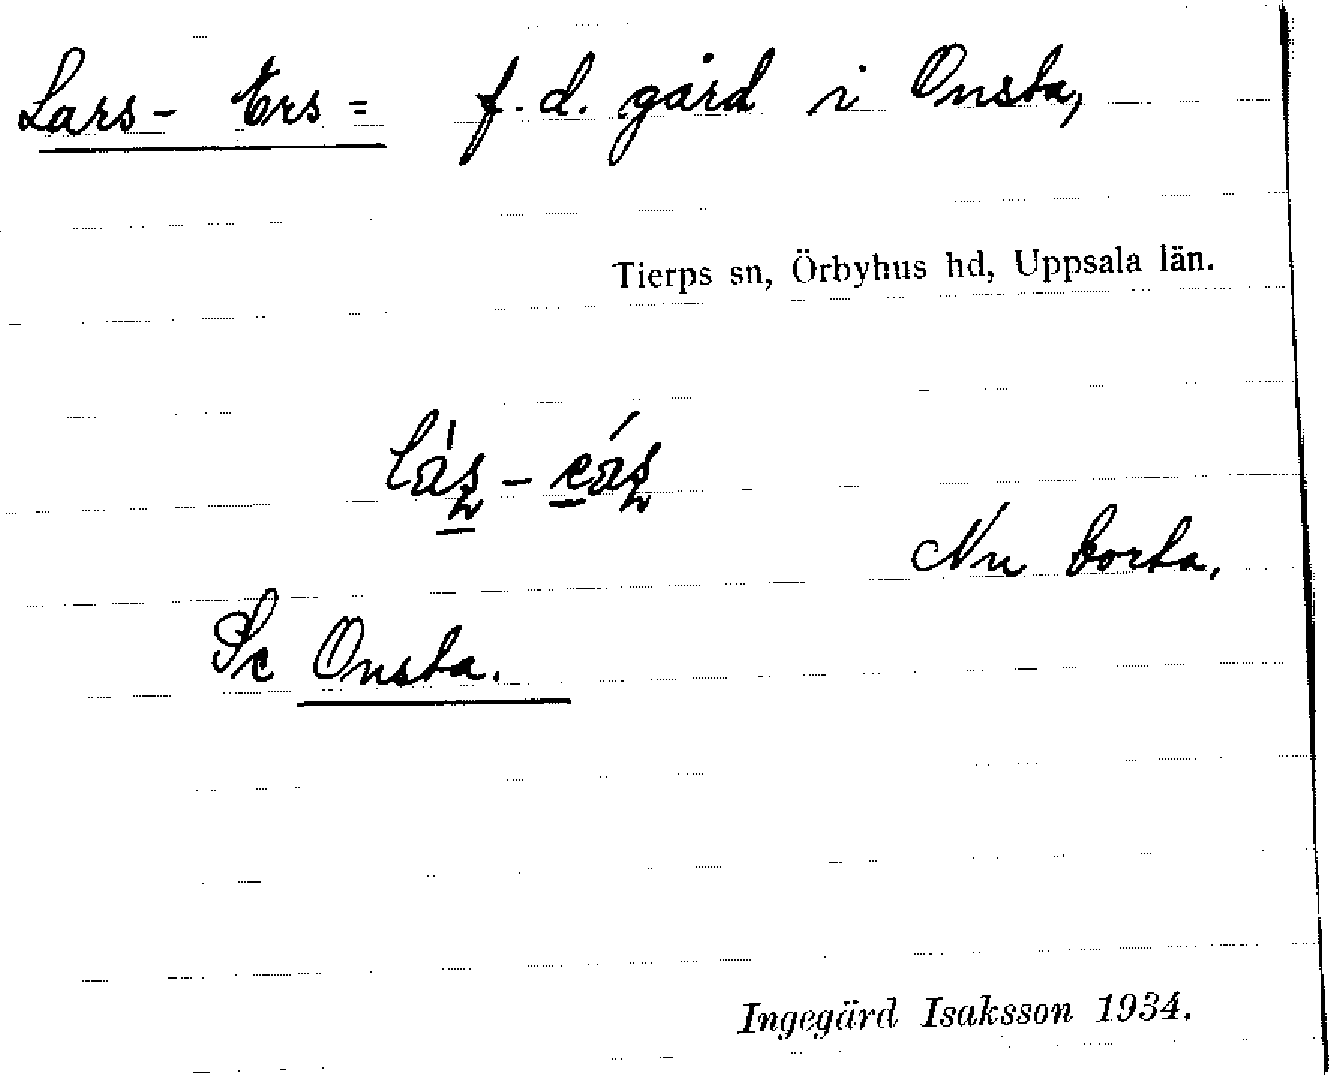 Lars-Ers= f.d. gård i Onsta,
Tierps sn, Örbyhus hd, Uppsala län.
Nu borta.
Se Onsta.
Ingegärd Isaksson 1934.